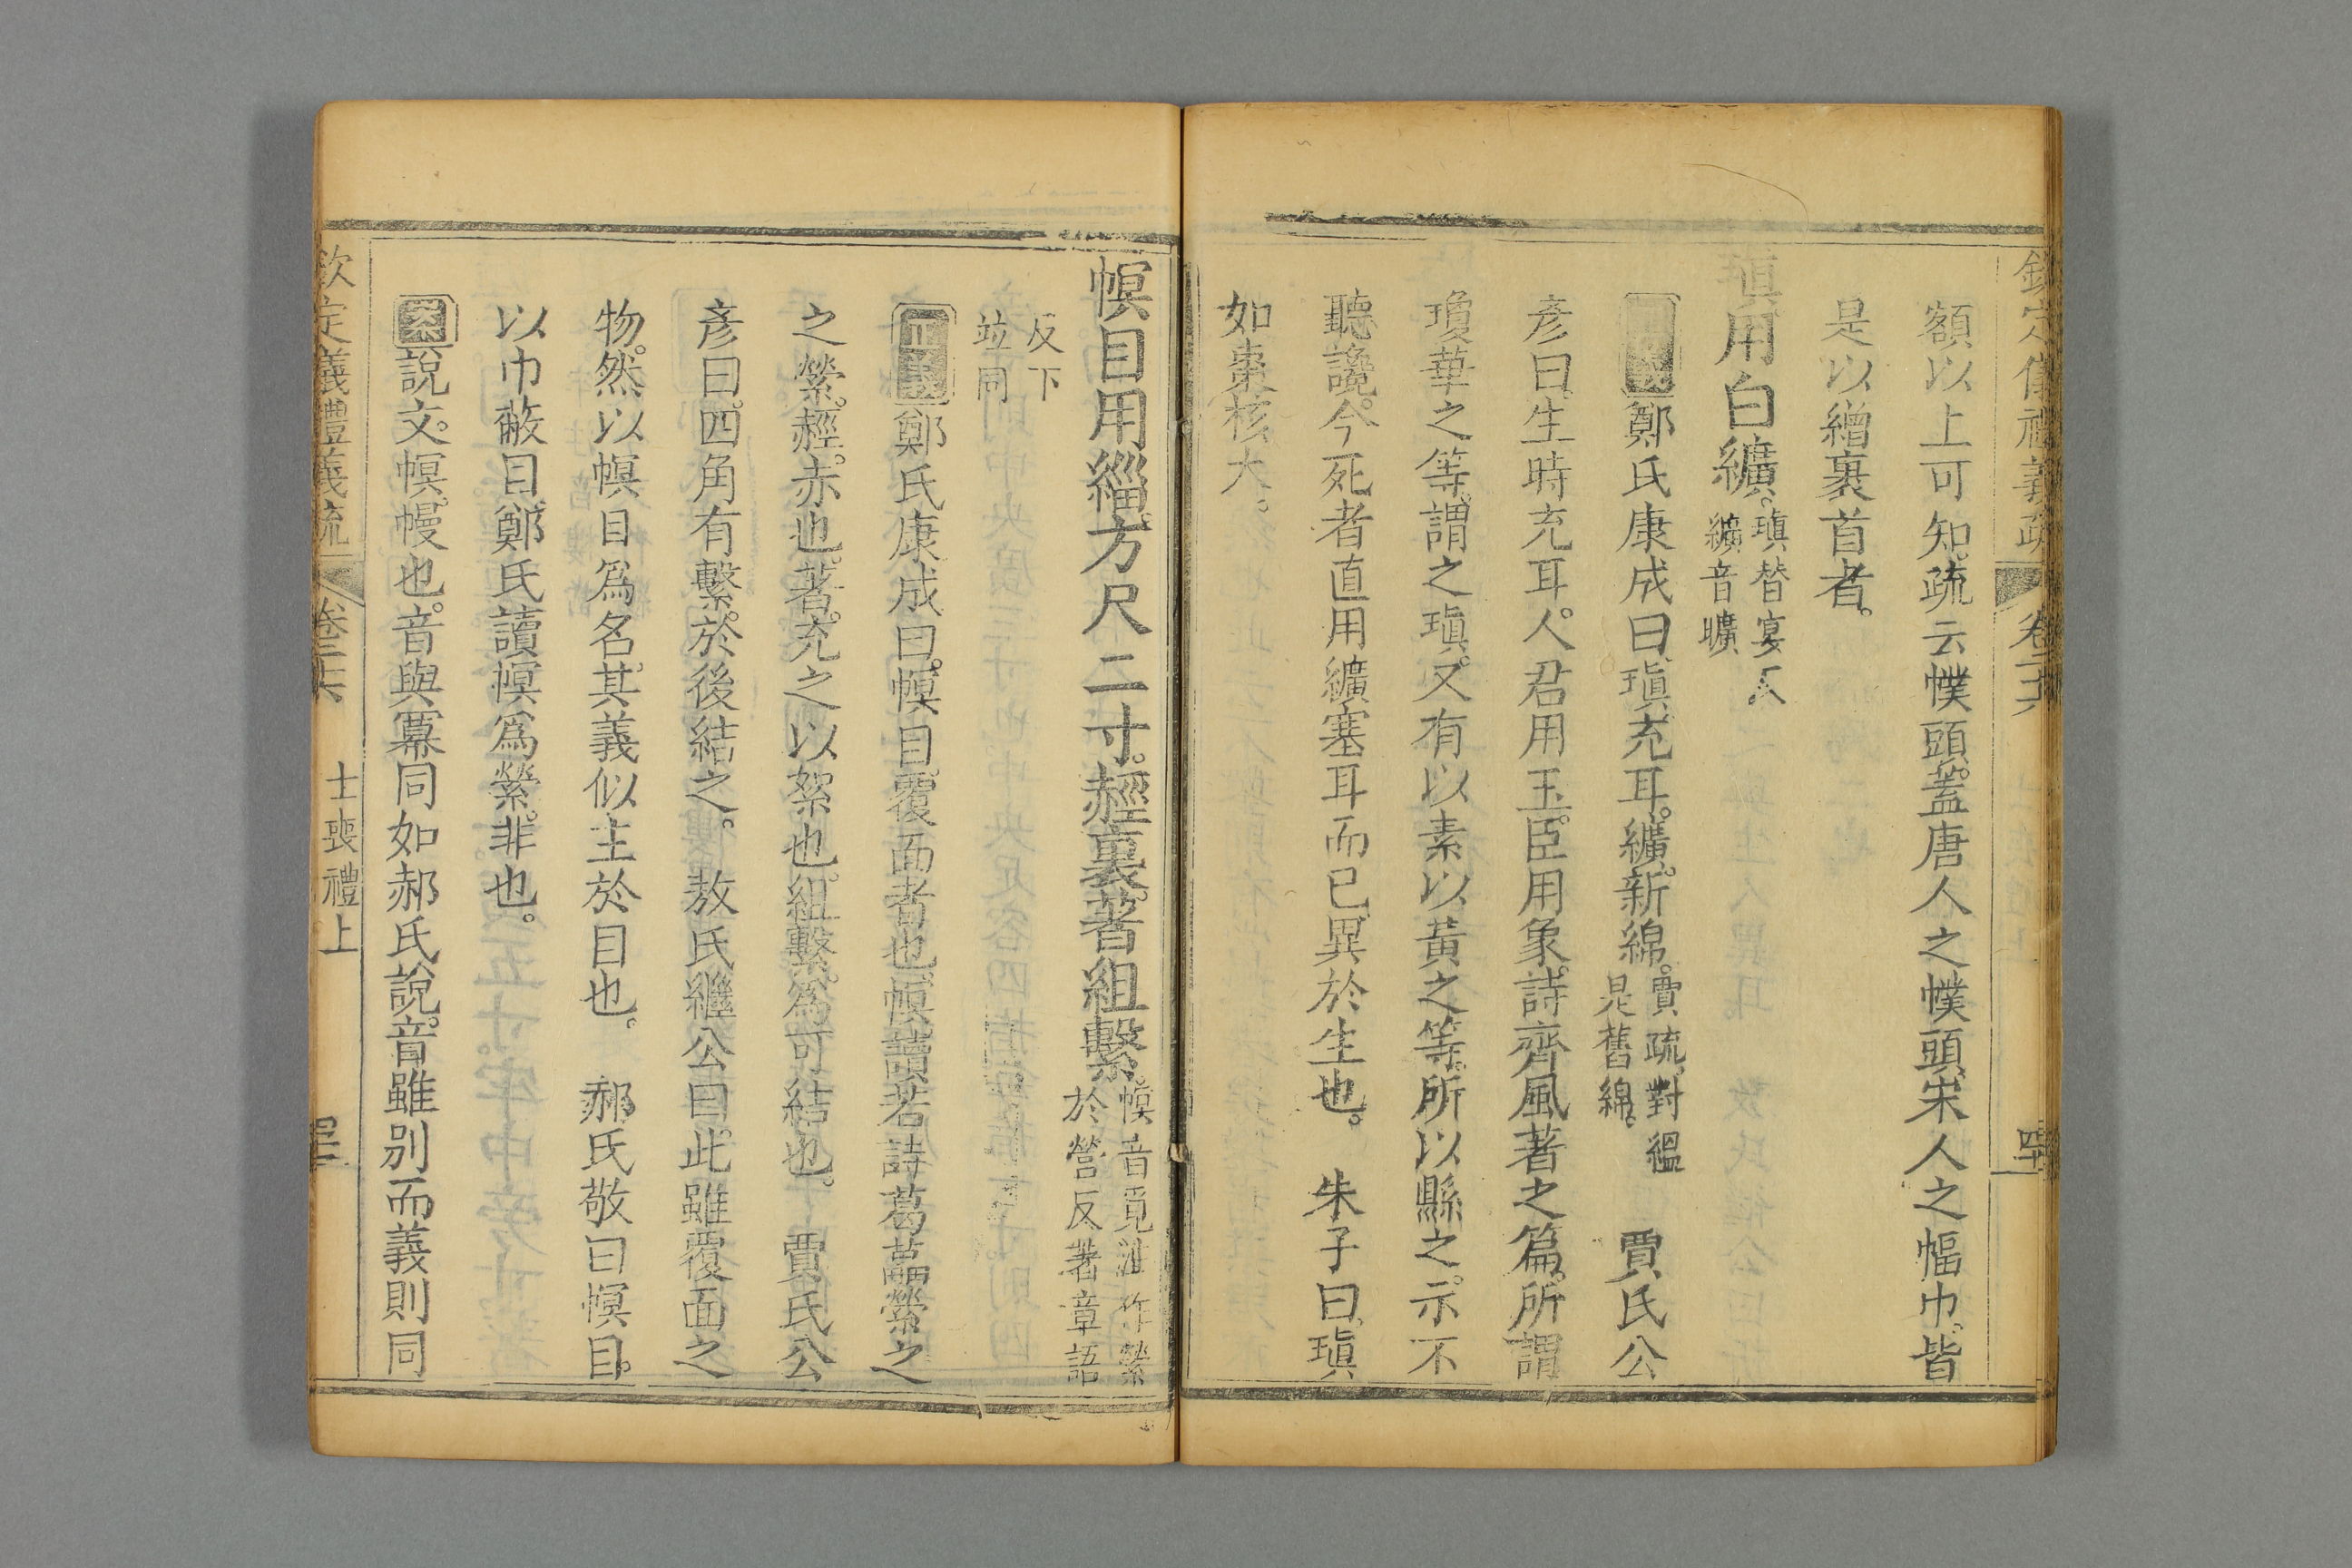 欽定儀禮義疏 卷二十六
額以上可知疏云幞頭蓋唐人之幞頭宋人之幅巾皆
是以繒裹首者。
瑱用白纊。瑱替宴人
纊音曠
鄭氏康成曰瑱充耳。纊。新綿。賈疏對縕
是舊綿。 賈氏公
彥曰。生時充耳。人君用玉。臣用象。詩齊風著之篇。所謂
瓊華之等。謂之瑱。又有以素以黃之等。所以縣之。示不
聽讒。今死者直用纊塞耳而已。異於生也。 朱子曰瑱
如棗核大。
幎目用緇。方尺二寸。䞓裏。著。組繫。幎音覓注作縈
於營反著章語
反下
竝同
正義鄭氏康成曰。幎目。覆面者也。幎讀若詩葛藟縈之
之縈。䞓。赤也。著。充之以絮也。組繫。爲可結也。 賈氏公
彥曰。四角有繫。於後結之。 敖氏繼公曰。此雖覆面之
物。然以幎目爲名。其義似主於目也。 郝氏敬曰幎目。
以巾蔽目。鄭氏讀幎爲縈。非也。
案說文。幎。幔也。音與冪同如郝氏說。音雖別而義則同
欽定儀禮義疏 卷二十六 士喪禮上